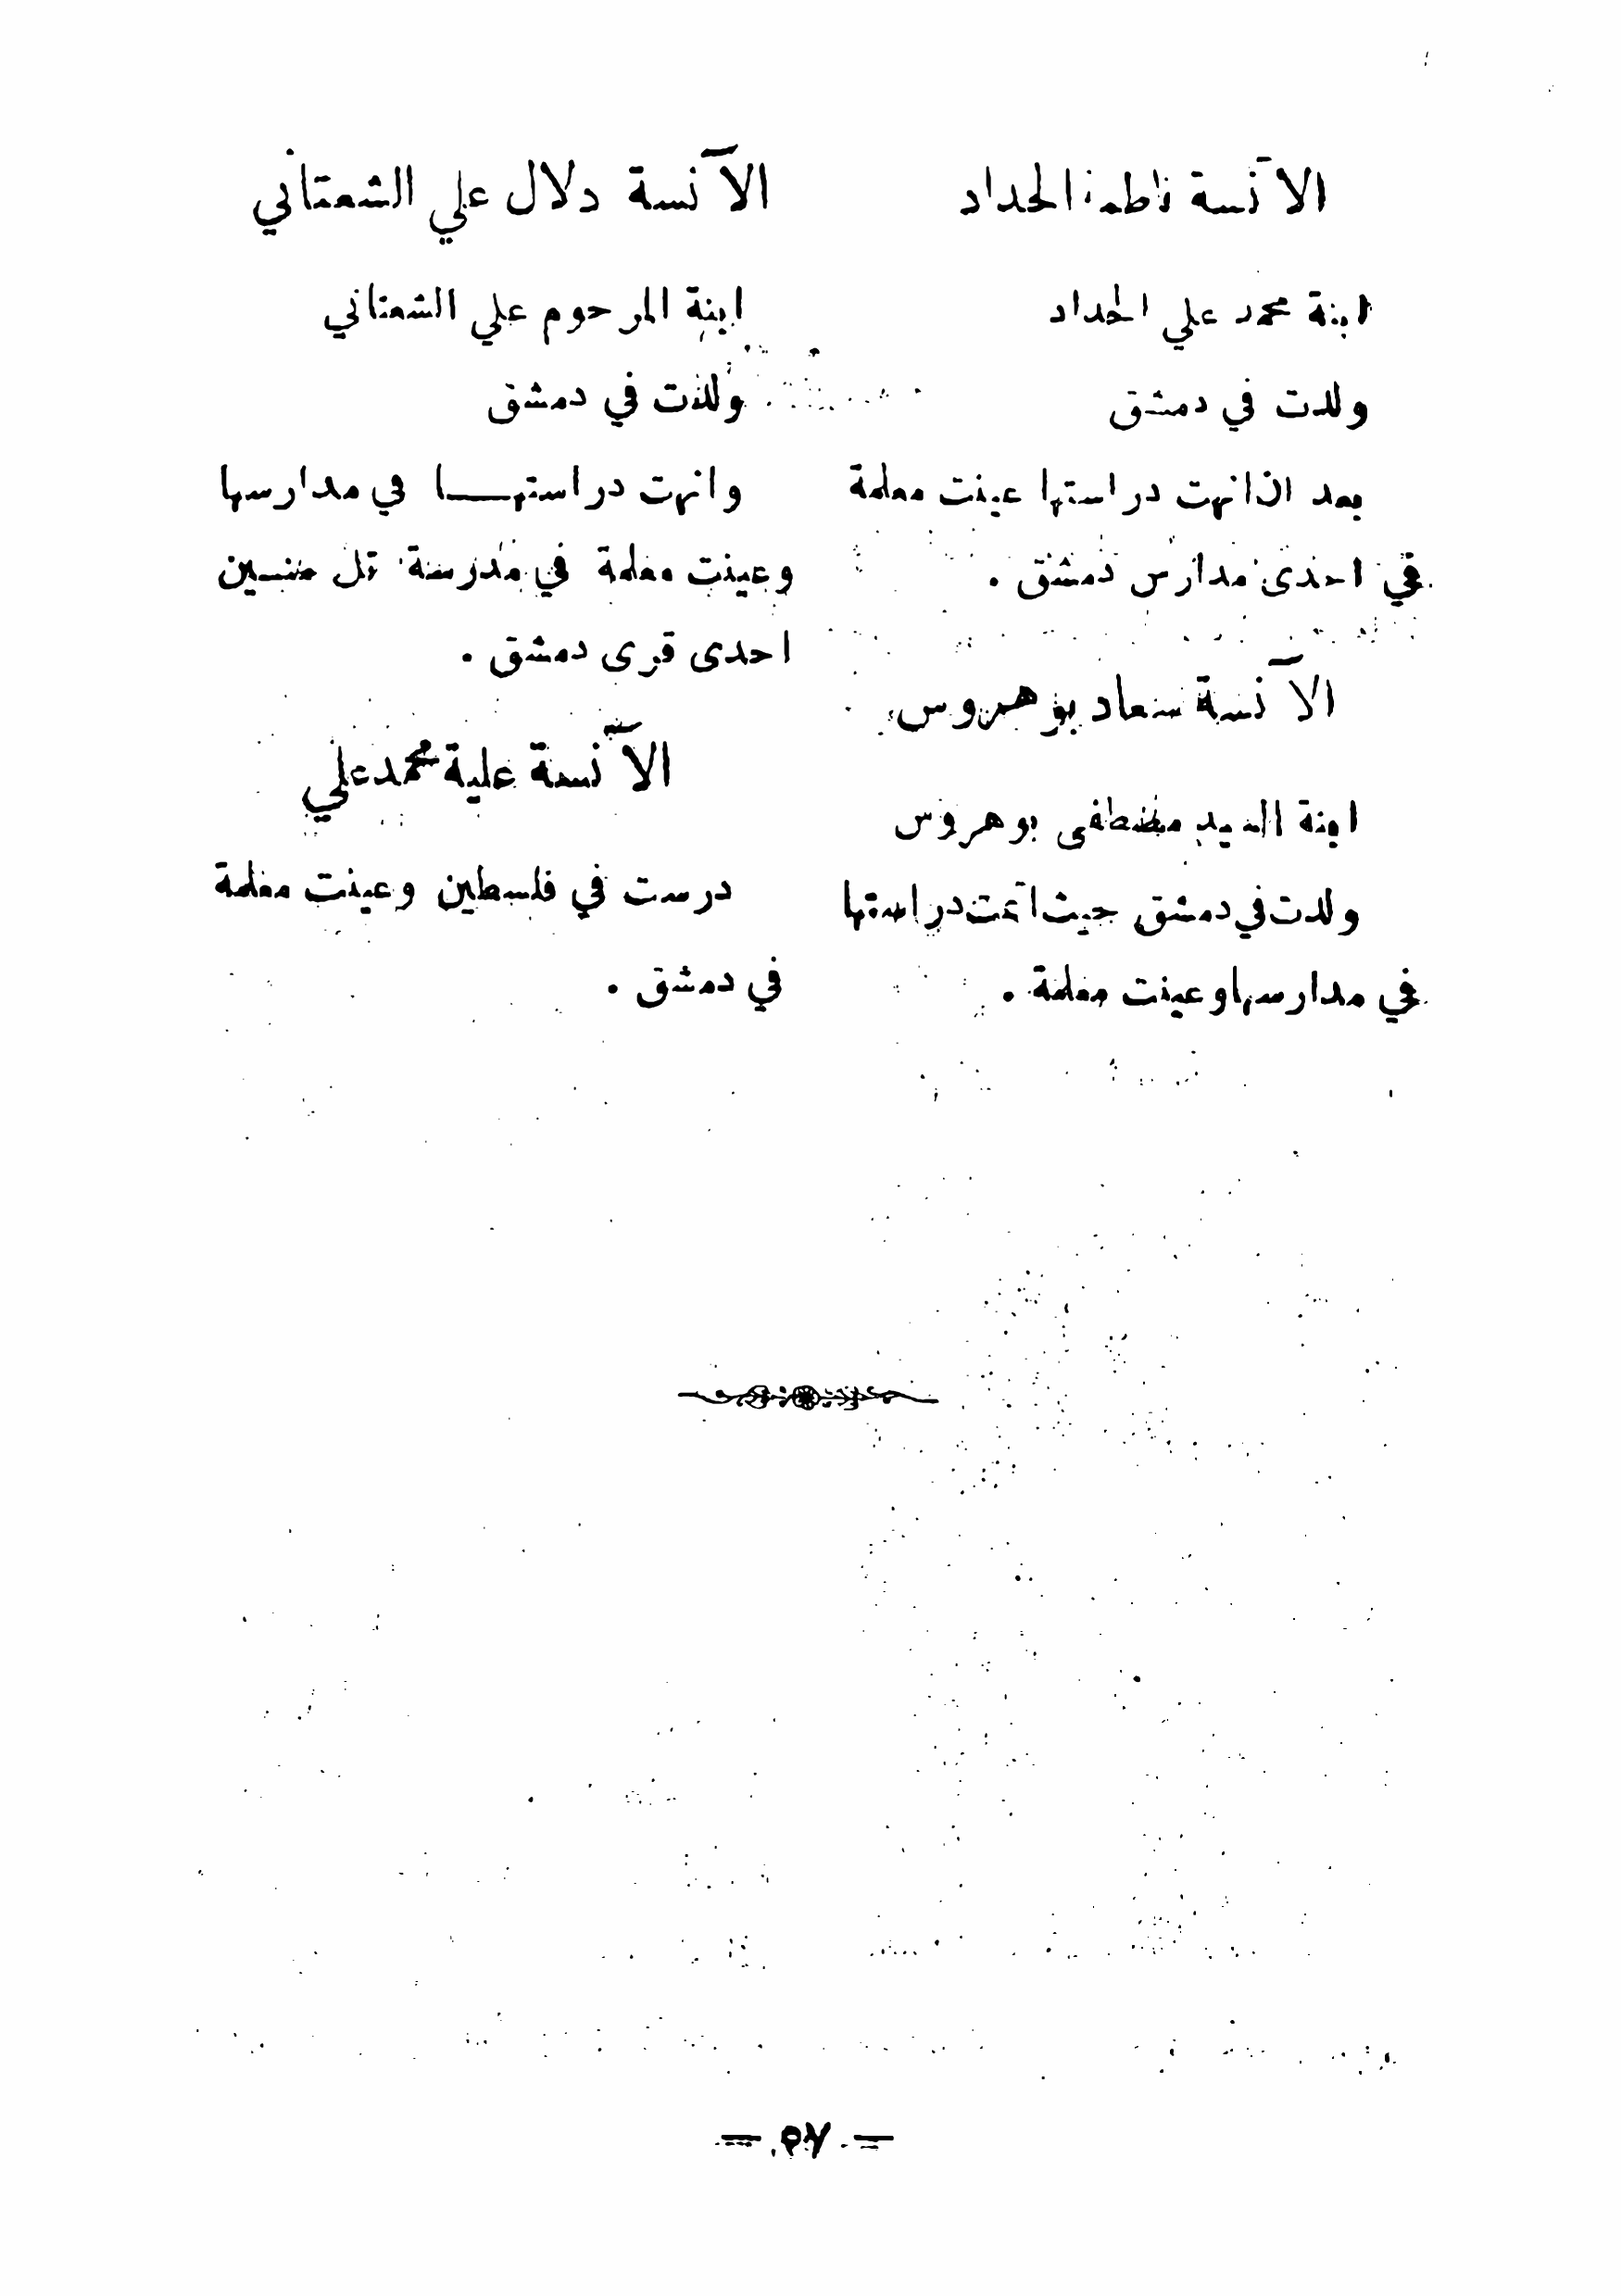 الآنسة فاطمة الحداد
ابنة محمد علي الحداد
ولدت في دمشق
بعد ان انهت دراستها عينت معلمة
في احدى مدارس دمشق .
الآنسة سعاد بو هروس
ابنة السيد مصطفى بو هروس
ولدت في دمشق حيث اتمت دراستها
في مدارسها وعينت معلمة .
الآنسة دلال علي الشمتاني
ابنة المرحوم علي الشمتاني
ولدت في دمشق
وانهت دراستهـــا في مدارسها
وعينت معلمة في مدرسة تل منـين
احدى قرى دمشق .
الآنسة علية محمد علي
درست في فلسطين وعينت معلمة
في دمشق .
— ٥٧ —